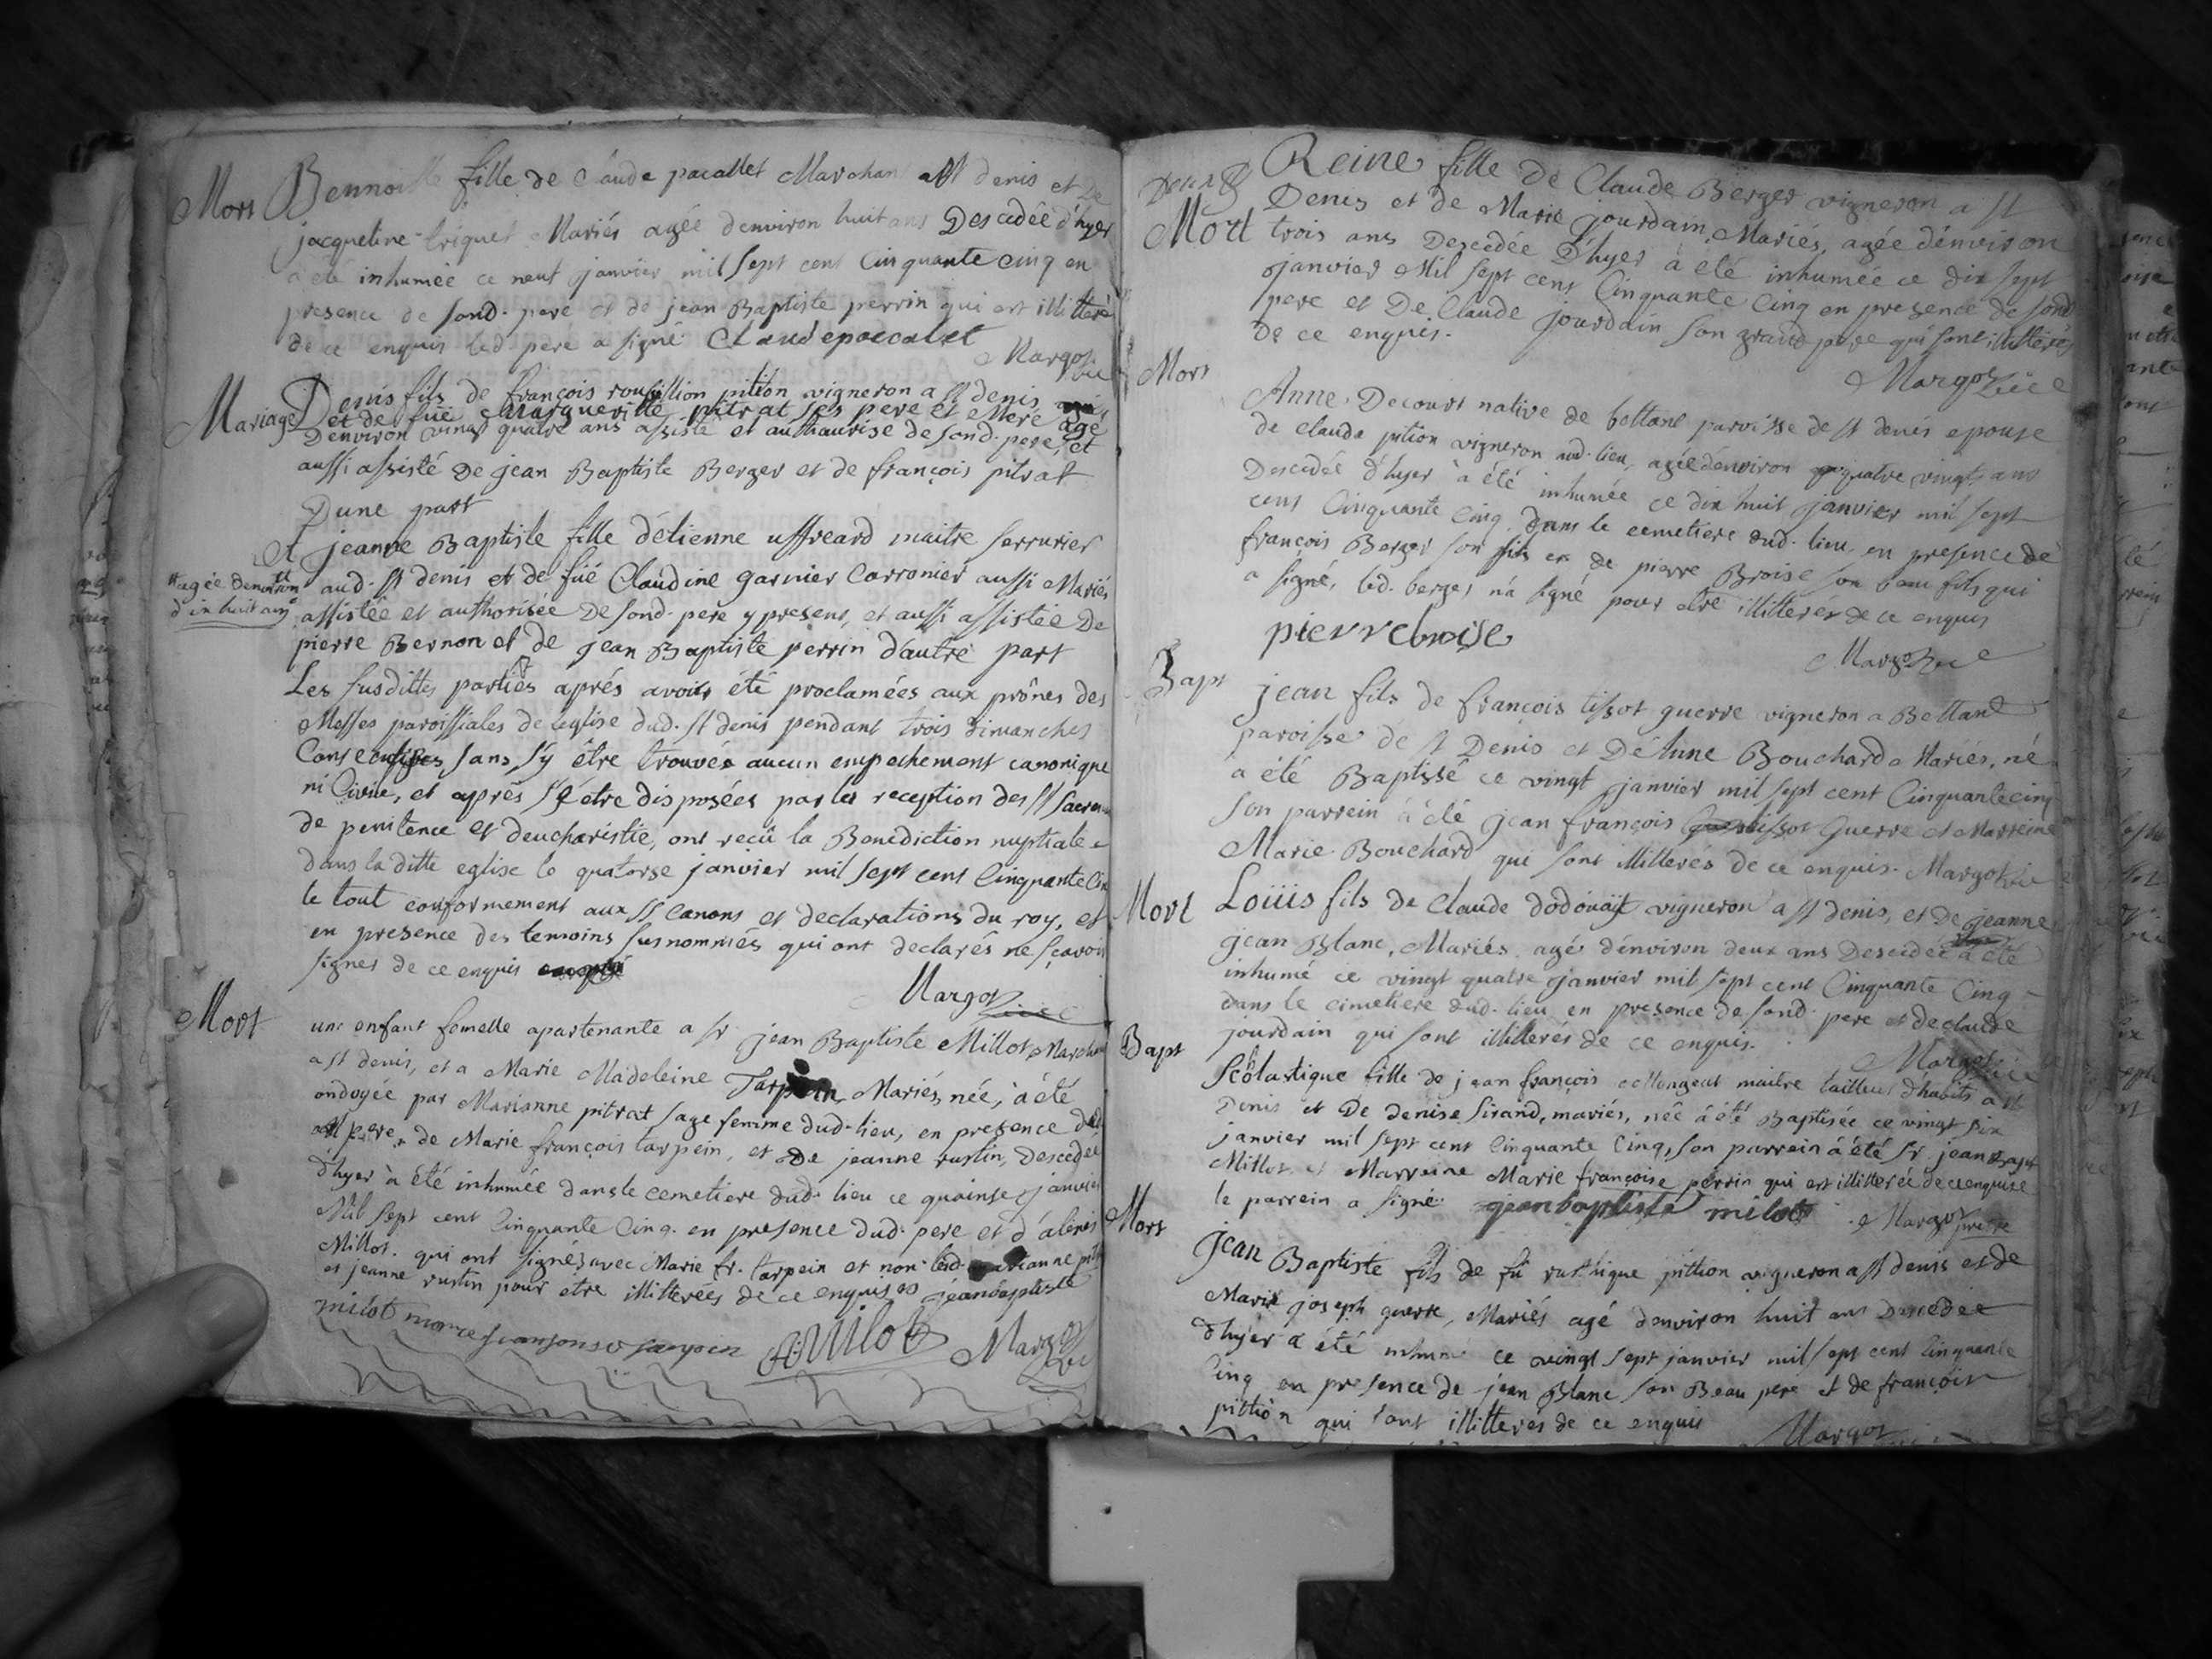 Mort
Bennoitte fille de Claude pacallet Marchan a St denis et De
jacqueline triquet Mariés agée denviron huit ans Descedée d'hyer
a été inhumée ce neuf janvier mil sept cent Cinquante cinq en
presence de sond. pere et de jean Baptiste perrin qui est illitteré
de ce enquis led. pere a signé Claudepacalet
Margot vic
Mariage
Denis fils de françois roussillion pition vigneron a st denis
et de fûe Margueritte pitrat ses pere et Mere agé
Denviron vingt quatre ans assisté et authaurise de sond. pere, et
aussi assisté De jean Baptiste Berger et de françois pitrat
Dune part
Et jeanne Baptiste fille d'étienne uffreard maitre serrurier
aud. st denis et de fûé Claudine garnier Carronier aussi Mariés
agée denviron
dix huit ans
assistée et authorisée De sond. pere y present, et aussi assistée De
pierre Bernon et de jean Baptiste perrin d'autre part
Les susdittes parties aprés avoir été proclamées aux prônes des
Messes paroissiales de leglise dud. st denis pendant trois dimanches
Consecutifes sans s'y être trouvés aucun empechement canonique
ni Civile, et aprés s'y etre disposées par la reception des SS sacrem
de penitence et deucharistie, ont reçû la Benediction nuptiale
dans la ditte eglise le quatorse janvier mil sept cent Cinquante Cin
le tout conformement aux SS Canons et declarations du roy, et
en presence des temoins susnommés qui ont declarés ne sçavoir
signer de ce enquis
Margot vic
Mort
une enfant femelle apartenante a sr jean Baptiste Millot Marchan
a st denis, et a Marie Madeleine Tarpein Mariés, née, à été
ondoyée par Marianne pitrat sage femme dud. lieu, en presence du
pere, de Marie françois tarpein, et De jeanne rustin, Descedée
d'hyer à été inhumée dans le cemetiere dud. lieu ce quainse janvier
Mil sept cent Cinquante Cinq. en presence dud. pere et d'alexis
Millot. qui ont signés avec Marie fr. tarpein et non lad. marianne pit
et jeanne rustin pour être illitterées de ce enquises jeanbaptiste
milot marie fransoise tarpein Milot Margot vic
Mort
Reine fille de Claude Berger vigneron a st
Denis et de Marie jourdain Mariés, agée d'environ
trois ans Descedée D'hyer à été inhumée ce dix sept
janvier Mil sept cent Cinquante Cinq en presence de sond
pere et De Claude jourdain son grand pere qui sont illitterés
de ce enquis.
Margot vic
Mort
Anne Decourt native de bettant parroisse de st denis epouse
de claude pition vigneron aud. lieu, agée denviron quatre vingts ans
Descedée d'hyer à été inhumée ce dix huit janvier mil sept
cent Cinquante Cinq. dans le cemetiere dud. lieu, en presence de
françois Berger son fils et de pierre Broise son beau fils qui
a signé, led. berger n'a signé pour etre illitterés de ce enquis
pierrebroise
Margot vic
Bapt
jean fils de françois tissot guerre vigneron a Bettant
paroisse de st Denis et D'Anne Bouchard Mariés, né
a été Baptissé ce vingt janvier mil sept cent Cinquante cinq
son parrein à été jean françois tissot Guerre et Marreine
Marie Bouchard qui sont illitterés de ce enquis. Margot vic
Mort
Loüis fils de Claude dodouat vigneron a st denis, et De jeanne
jean Blanc, Mariés agé d'environ deux ans Descedée a été
inhumé ce vingt quatre janvier mil sept cent Cinquante Cinq
dans le cimetiere dud. lieu en presence de sond. pere et declaude
jourdain qui sont illitterés de ce enquis.
Margot vic
Bapt
Scolastique fille de jean françois Mongeut maitre tailleur d'habits a st
Denis et De denise sirand, mariés, née à été Baptisée ce vingt six
janvier mil sept cent Cinquante Cinq, son parrein à été sr. jean Bapt
Millot et Marreine Marie françoise perrin qui est illitterée de ce enquise
le parrein a signé jeanbaptiste milot Margot prestre
Mort
Jean Baptiste fils de fû rusthique pittion vigneron a st denis et de
Marie joseph guerre, Mariés agé denviron huit ans Descedée
d'hyer à été inhumé ce vingt sept janvier mil sept cent Cinquante
Cinq en presence de jean Blanc son Beau pere et de françois
pittion qui sont illitterés de ce enquis
Margot